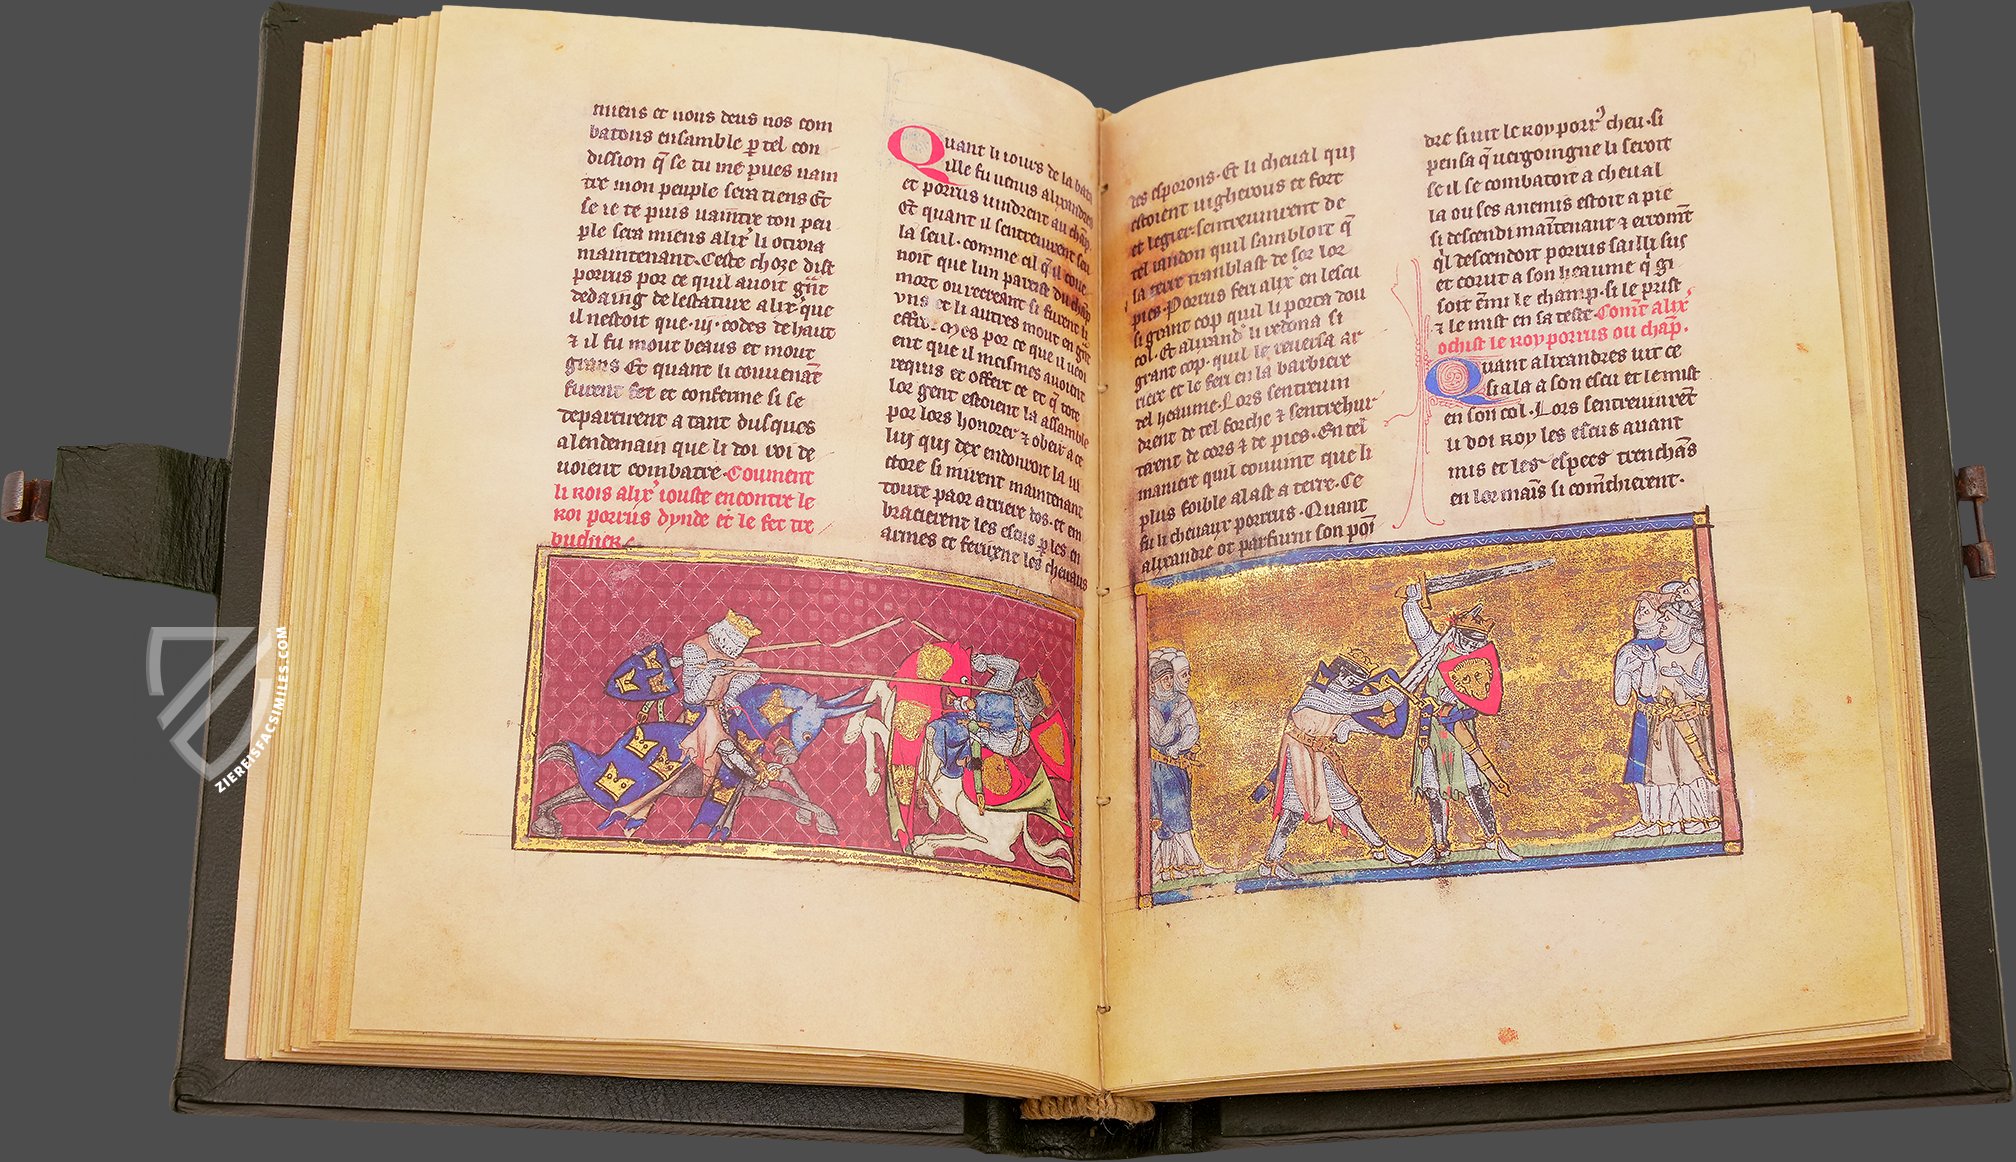 miens et nous deus nos com
batons ensamble p tel con
dission q̄ se tu me pues vain
tre mon peuple sera tiens Et
se ie te puis vaintre ton peu
ple sera miens alix' li otroia
maintenant. Ceste choze dist
porrus por ce quil auoit gn̄t
dedaing de lestature alix' que
il nestoit que .iij. codes de haut
⁊ il fu mout beaus et mout
grans Et quant li conuenāt
furent fet et conferme si se
departirent a tant dusques
alendemain que li doi roi de
uoient combatre. Coument
li rois alix' iouste encontre le
roi porrus dynde et le fet tre
buchier.
Quant li iours de la bata
ille fu uenus alixandres
et porrus uindrent au chāp.
Et quant il sentreuirent seu
la seul. comme cil q̄ il coue
noit que lun partist du chāp
mort ou recreant si furent li
vns et li autres mout en gn̄t
effroi. Mes por ce que il ueoi
ent que il meismes auoient
requis et offert ce et q̄ tote
lor gent estoient la assamble
por lors honorer ⁊ obeir a ce
lui qui dex endonroit la ui
ctore si mirent maintenant
toute paor arriere dos. et en
bracierent les escus p les en
armes et ferirent les cheuaus
des esporons. Et li cheual qui
estoient uigherous et fort
et legier. sentreuinrent de
tel randon quil sambloit q̄
la terre tramblast de sor lor
pies. Porrus feri alix' en lescu
si grant cop quil li porta dou
col. Et alixand' li redona si
grant cop. quil le reuersa ar
riere et le feri en la barbiere
del heaume. Lors sentreuin
drent de tel forche ⁊ sentrehur
terent de cors ⁊ de pies. En tel
maniere quil couuint que li
plus foible alast a terre. Ce
fu li cheuaus porrus. Quant
alixandre ot parfurni son poi
dre si uit le roy porr' cheu. si
pensa q̄ uergoingne li seroit
se il se combatoit a cheual
la ou ses anemis estoit a pie
si descendi maintenant ⁊ erromt
q̄l descendoit porrus sailli sus
et corut a son heaume q̄ gi
soit ēmi le champ. si le prist
⁊ le mist en sa teste. Comt alix'
ochist le roy porrus ou chāp.
Quant alixandres uit ce
si ala a son escu et le mist
en son col. Lors sentreuinrēt
li doi roy les escus auant
mis et les espees trenchās
en lor mais si com̄chierent.
ZIEREISFACSIMILES.COM